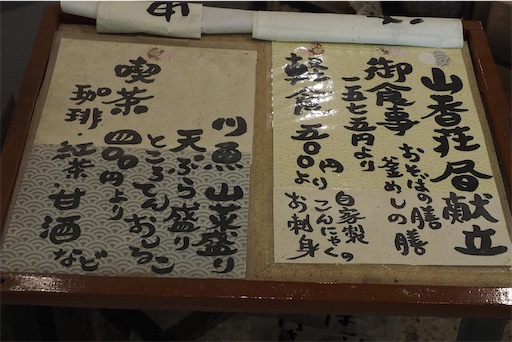 山香荘昼献立
御食事
おそばの膳
釜めしの膳
一五七五円より
軽食
五〇〇円より
自家製
こんにゃくの
お刺身
川魚 山菜盛り
天ぷら盛り
ところてん おしるこ
喫茶 四〇〇円より
珈琲・紅茶・甘酒など